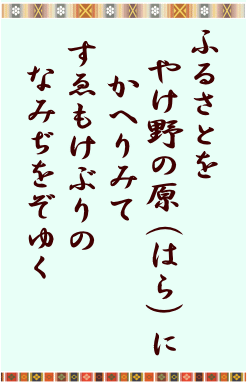 ふるさとを
やけ野の原（はら）に
かへりみて
すゑもけぶりの
なみぢをぞゆく